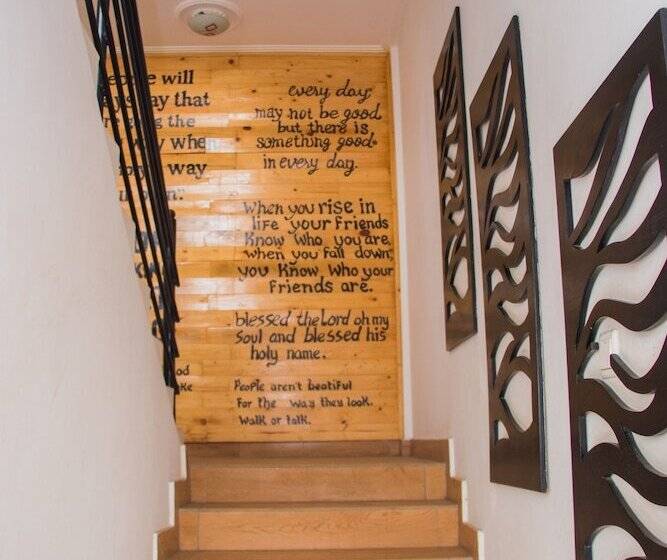 will
that
the
when
way
every day;
may not be good,
but there is,
something good.
in every day.
When you rise in
life your friends
know who you are,
when you fall down,
you know who your
friends are.
blessed the Lord oh my
soul and blessed his
holy name.
People aren't beatiful
For the way they look.
Walk or talk.